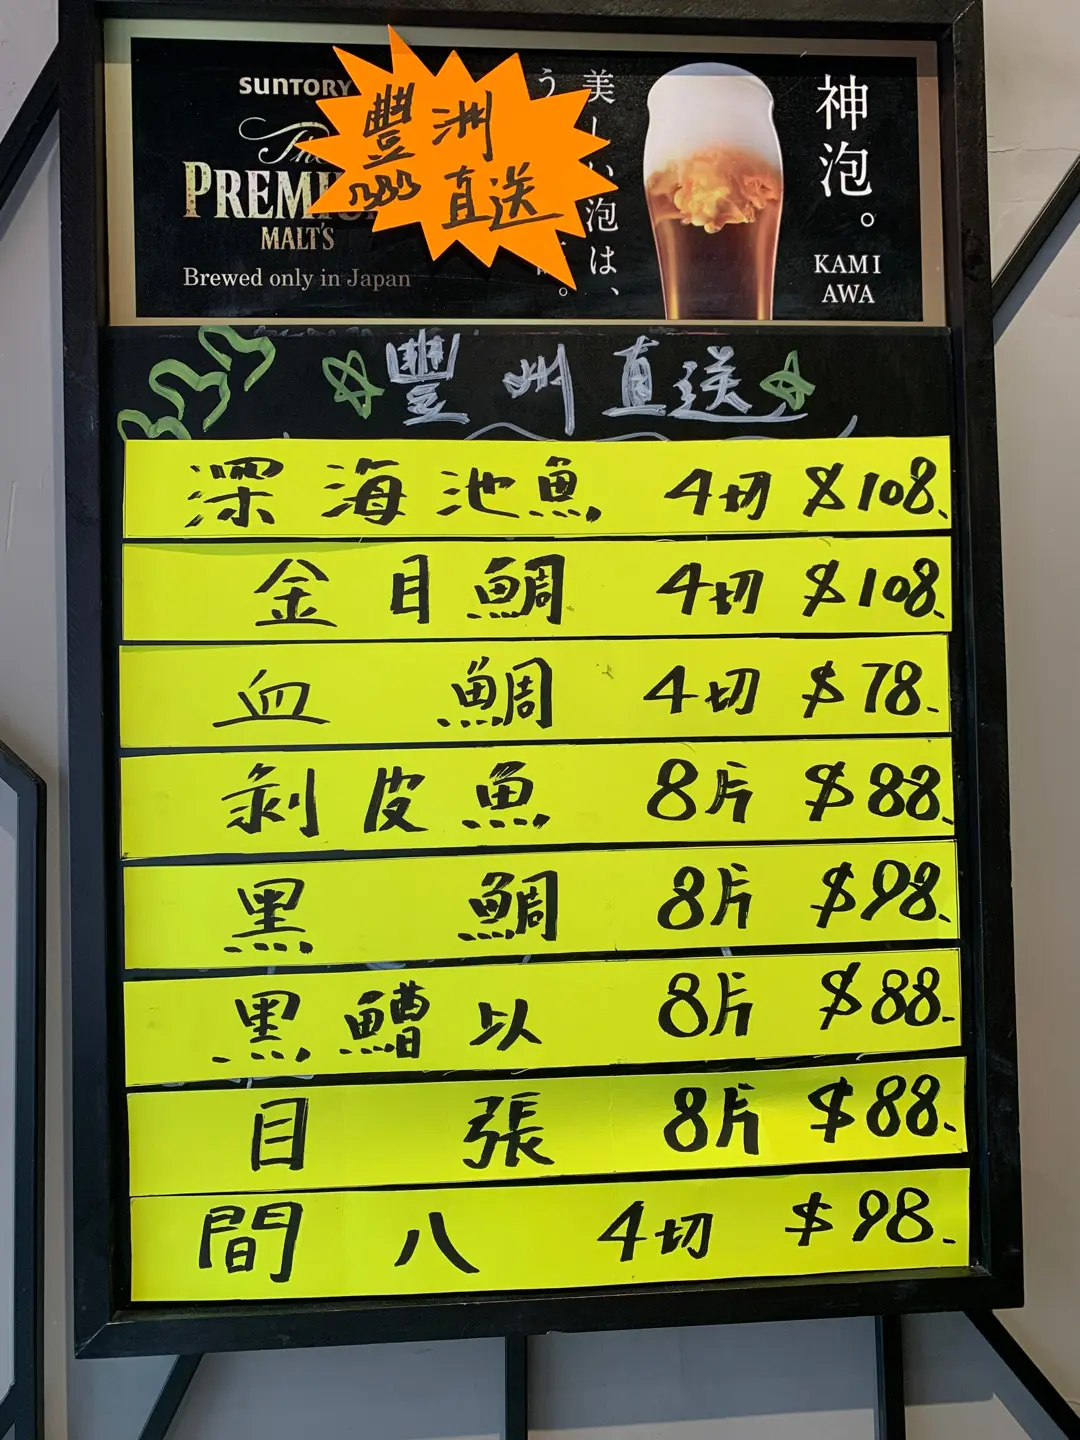 SUNTORY
The
PREMIU
MALT'S
Brewed only in Japan
豐洲
直送
美しい泡は、
う
。
神泡。
KAMI
AWA
豐洲直送
深海池魚 4切 $108.
金目鯛 4切 $108.
血鯛 4切 $78.
剥皮魚 8片 $88.
黑鯛 8片 $98.
黑鰽以 8片 $88.
目張 8片 $88.
間八 4切 $98.